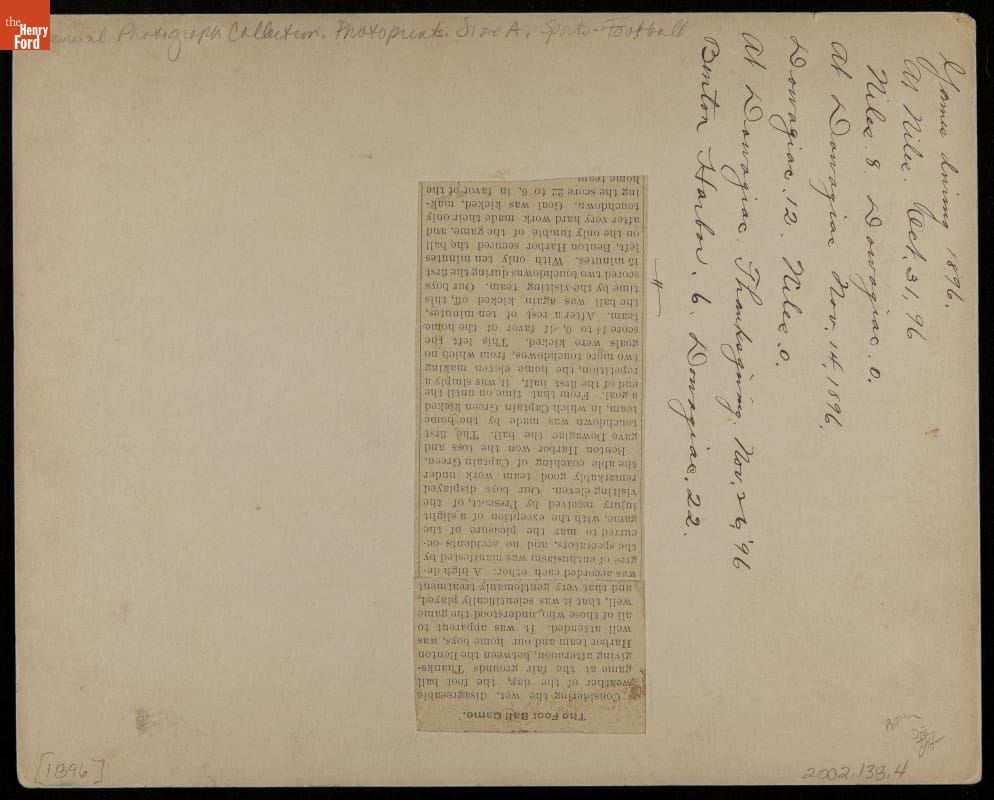 the
Henry
Ford
General Photograph Collection. Photoprints. Size A. Sports-Football
Games during 1896.
At Niles. Oct. 31, 96
Niles. 8. Dowagiac. 0.
At Dowagiac Nov. 14, 1896.
Dowagiac. 12. Niles. 0.
At Dowagiac. Thanksgiving. Nov. 26, '96
Benton Harbor. 6. Dowagiac. 22.
The Foot Ball Game.
Considering the wet, disagreeable
weather of the day, the foot ball
game at the fair grounds Thanks-
giving afternoon, between the Benton
Harbor team and our home boys, was
well attended. It was apparent to
all of those who understood the game
well, that it was scientifically played,
and that very gentlemanly treatment
was accorded each other. A high de-
gree of enthusiasm was manifested by
the spectators, and no accidents oc-
curred to mar the pleasure of the
game, with the exception of a slight
injury received by Prescott, of the
visiting eleven. Our boys displayed
remarkably good team work under
the able coaching of Captain Green.
Benton Harbor won the toss and
gave Dowagiac the ball. The first
touchdown was made by the home
team, in which Captain Green kicked
a goal. From that time on until the
end of the first half, it was simply a
repetition, the home eleven making
two more touchdowns, from which no
goals were kicked. This left the
score 14 to 0, in favor of the home
team. After a rest of ten minutes,
the ball was again kicked off, this
time by the visiting team. Our boys
scored two touchdowns during the first
15 minutes. With only ten minutes
left, Benton Harbor secured the ball
on the only fumble of the game, and
after very hard work made their only
touchdown. Goal was kicked, mak-
ing the score 22 to 6, in favor of the
home team
[1896]
2002.138.4